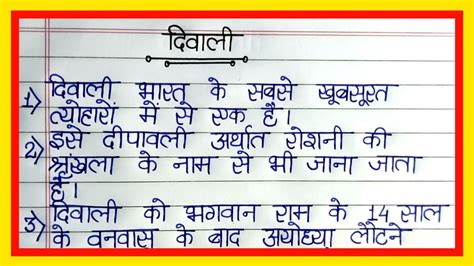 दिवाली
1) दिवाली भारत के सबसे खूबसूरत
त्योहारों में से एक है।
2) इसे दीपावली अर्थात रोशनी की
श्रृंखला के नाम से भी जाना जाता
है।
3) दिवाली को भगवान राम के 14 साल
के वनवास के बाद अयोध्या लौटने